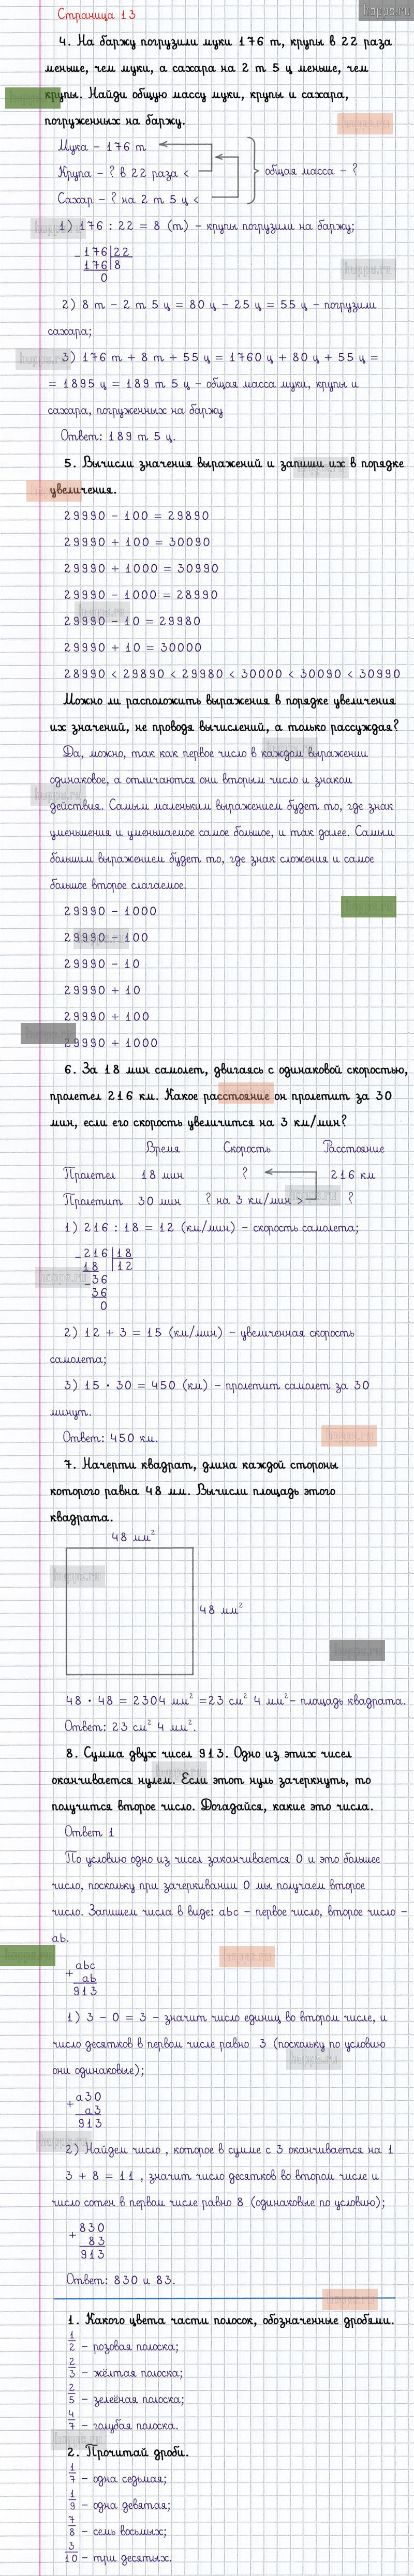 Страница 13
4. На баржу погрузили муки 176 т, крупы в 22 раза
меньше, чем муки, а сахара на 2 т 5 ц меньше, чем
крупы. Найди общую массу муки, крупы и сахара,
погруженных на баржу.
Мука – 176 т
Крупа – ? в 22 раза < общая масса – ?
Сахар – ? на 2 т 5 ц <
1) 176 : 22 = 8 (т) – крупы погрузили на баржу;
– 176 22
176 8
0
2) 8 т – 2 т 5 ц = 80 ц – 25 ц = 55 ц – погрузили
сахара;
3) 176 т + 8 т + 55 ц = 1760 ц + 80 ц + 55 ц =
= 1895 ц = 189 т 5 ц – общая масса муки, крупы и
сахара, погруженных на баржу
Ответ: 189 т 5 ц.
5. Вычисли значения выражений и запиши их в порядке
увеличения.
29990 – 100 = 29890
29990 + 100 = 30090
29990 + 1000 = 30990
29990 – 1000 = 28990
29990 – 10 = 29980
29990 + 10 = 30000
28990 < 29890 < 29980 < 30000 < 30090 < 30990
Можно ли расположить выражения в порядке увеличения
их значений, не проводя вычислений, а только рассуждая?
Да, можно, так как первое число в каждом выражении
одинаковое, а отличаются они вторым число и знаком
действия. Самым маленьким выражением будет то, где знак
уменьшения и уменьшаемое самое большое, и так далее. Самым
большим выражением будет то, где знак сложения и самое
большое второе слагаемое.
29990 – 1000
29990 – 100
29990 – 10
29990 + 10
29990 + 100
29990 + 1000
6. За 18 мин самолет, двигаясь с одинаковой скоростью,
пролетел 216 км. Какое расстояние он пролетит за 30
мин, если его скорость увеличится на 3 км/мин?
Время Скорость Расстояние
Пролетел 18 мин ? 216 км
Пролетит 30 мин ? на 3 км/мин > ?
1) 216 : 18 = 12 (км/мин) – скорость самолета;
– 216 18
18 12
– 36
36
0
2) 12 + 3 = 15 (км/мин) – увеличенная скорость
самолета;
3) 15 · 30 = 450 (км) – пролетит самолет за 30
минут.
Ответ: 450 км.
7. Начерти квадрат, длина каждой стороны
которого равна 48 мм. Вычисли площадь этого
квадрата.
48 мм²
48 мм²
48 · 48 = 2304 мм² =23 см² 4 мм²– площадь квадрата.
Ответ: 23 см² 4 мм².
8. Сумма двух чисел 913. Одно из этих чисел
оканчивается нулем. Если этот нуль зачеркнуть, то
получится второе число. Догадайся, какие это числа.
Ответ 1
По условию одно из чисел заканчивается 0 и это большее
число, поскольку при зачеркивании 0 мы получаем второе
число. Запишем числа в виде: abc – первое число, второе число –
ab.
+ abc
ab
913
1) 3 – 0 = 3 – значит число единиц во втором числе, и
число десятков в первом числе равно 3 (поскольку по условию
они одинаковые);
+ a30
a3
913
2) Найдем число , которое в сумме с 3 оканчивается на 1
3 + 8 = 11 , значит число десятков во втором числе и
число сотен в первом числе равно 8 (одинаковые по условию);
+ 830
83
913
Ответ: 830 и 83.
1. Какого цвета части полосок, обозначенные дробями.
1/2 – розовая полоска;
2/3 – жёлтая полоска;
2/5 – зелёная полоска;
4/7 – голубая полоска.
2. Прочитай дроби.
1/7 – одна седьмая;
1/9 – одна девятая;
7/8 – семь восьмых;
3/10 – три десятых.